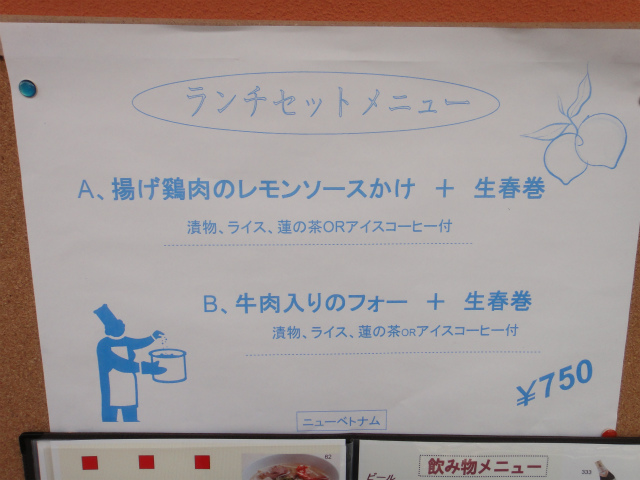 ランチセットメニュー
A、揚げ鶏肉のレモンソースかけ ＋ 生春巻
漬物、ライス、蓮の茶ORアイスコーヒー付
B、牛肉入りのフォー ＋ 生春巻
漬物、ライス、蓮の茶ORアイスコーヒー付
¥750
ニューベトナム
62
飲み物メニュー
ビール
333